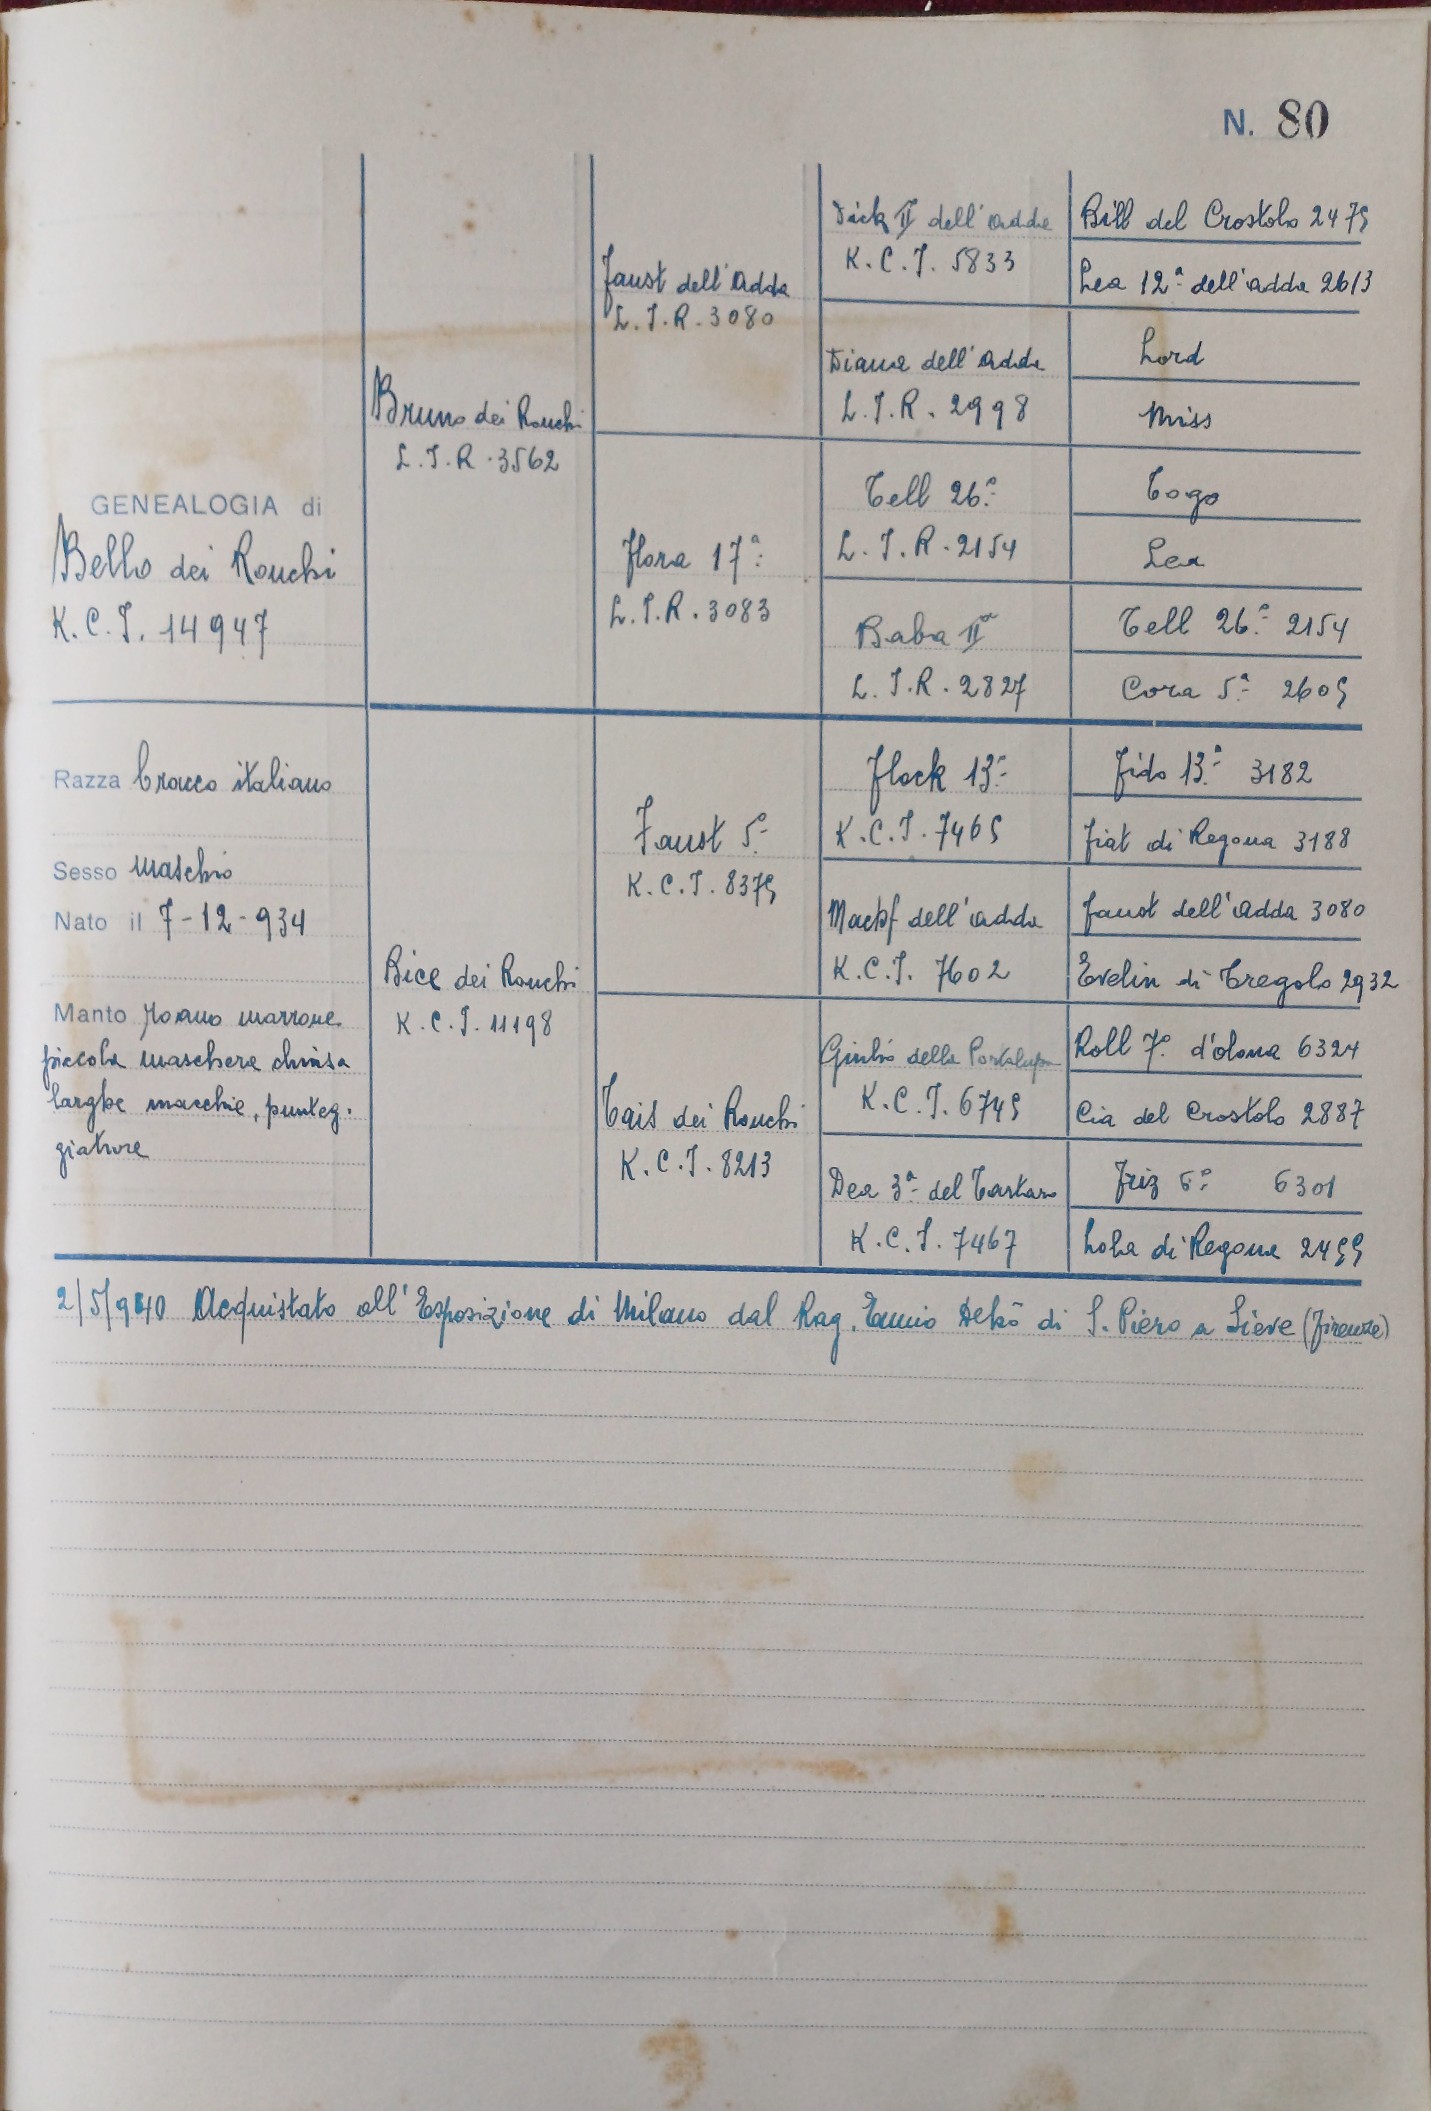 N. 80
GENEALOGIA di
Bello dei Ronchi
K.C.I. 14947
Razza bracco italiano
Sesso maschio
Nato il 7-12-934
Manto roano marrone
piccola maschera chiusa
larghe macchie, punteg.
giature
Bruno dei Ronchi
L.I.R. 3562
Bice dei Ronchi
K.C.I. 11198
Faust dell'Adda
L.I.R. 3080
Flora 17ª
L.I.R. 3083
Faust 5º
K.C.I. 8375
Tais dei Ronchi
K.C.I. 8213
Dick II dell'Adda
K.C.I. 5833
Diana dell'Adda
L.I.R. 2998
Tell 26º
L.I.R. 2154
Baba IIª
L.I.R. 2827
Flock 13º
K.C.I. 7465
dell'Adda
K.C.I. 7602
Giulio della Portalupa
K.C.I. 6745
Dea 3ª del Tartaro
K.C.I. 7467
Bill del Crostolo 2475
Lea 12ª dell'Adda 2613
Lord
Miss
Togo
Lea
Tell 26º 2154
Cora 5ª 2605
Fido 13º 3182
Fiat di Regona 3188
Faust dell'Adda 3080
Evelin di Tregolo 2932
Roll 7º d'Olona 6324
Cia del Crostolo 2887
Friz 6º 6301
Lola di Regona 2455
2/5/940 Acquistato all'Esposizione di Milano dal Rag. Ennio di S. Piero a Sieve (Firenze)